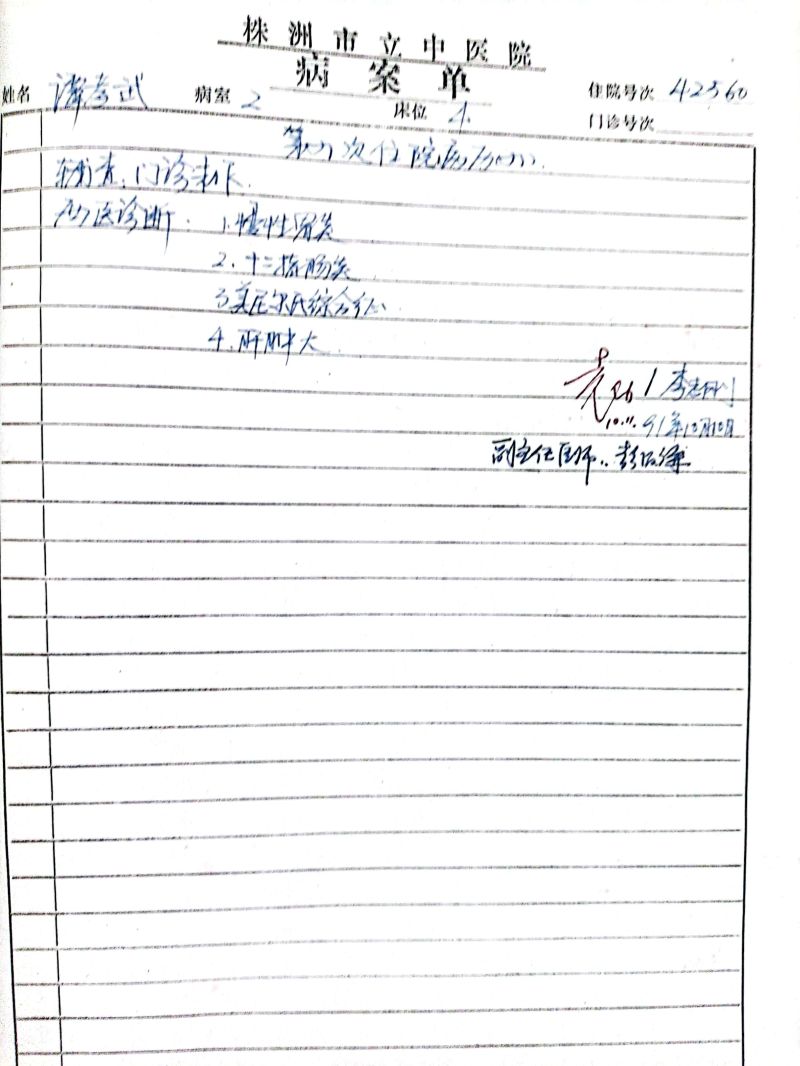 株洲市立中医院
病案单
姓名 谭孝武 病室 2 床位 4 住院号次 42560
门诊号次
第 次住院病历
查:门诊未作
西医诊断: 1.慢性胃炎
2.十二指肠炎
3.美尼尔氏综合征
4.肝肿大
李
10.11. 91年10月10日
副主任医师:彭